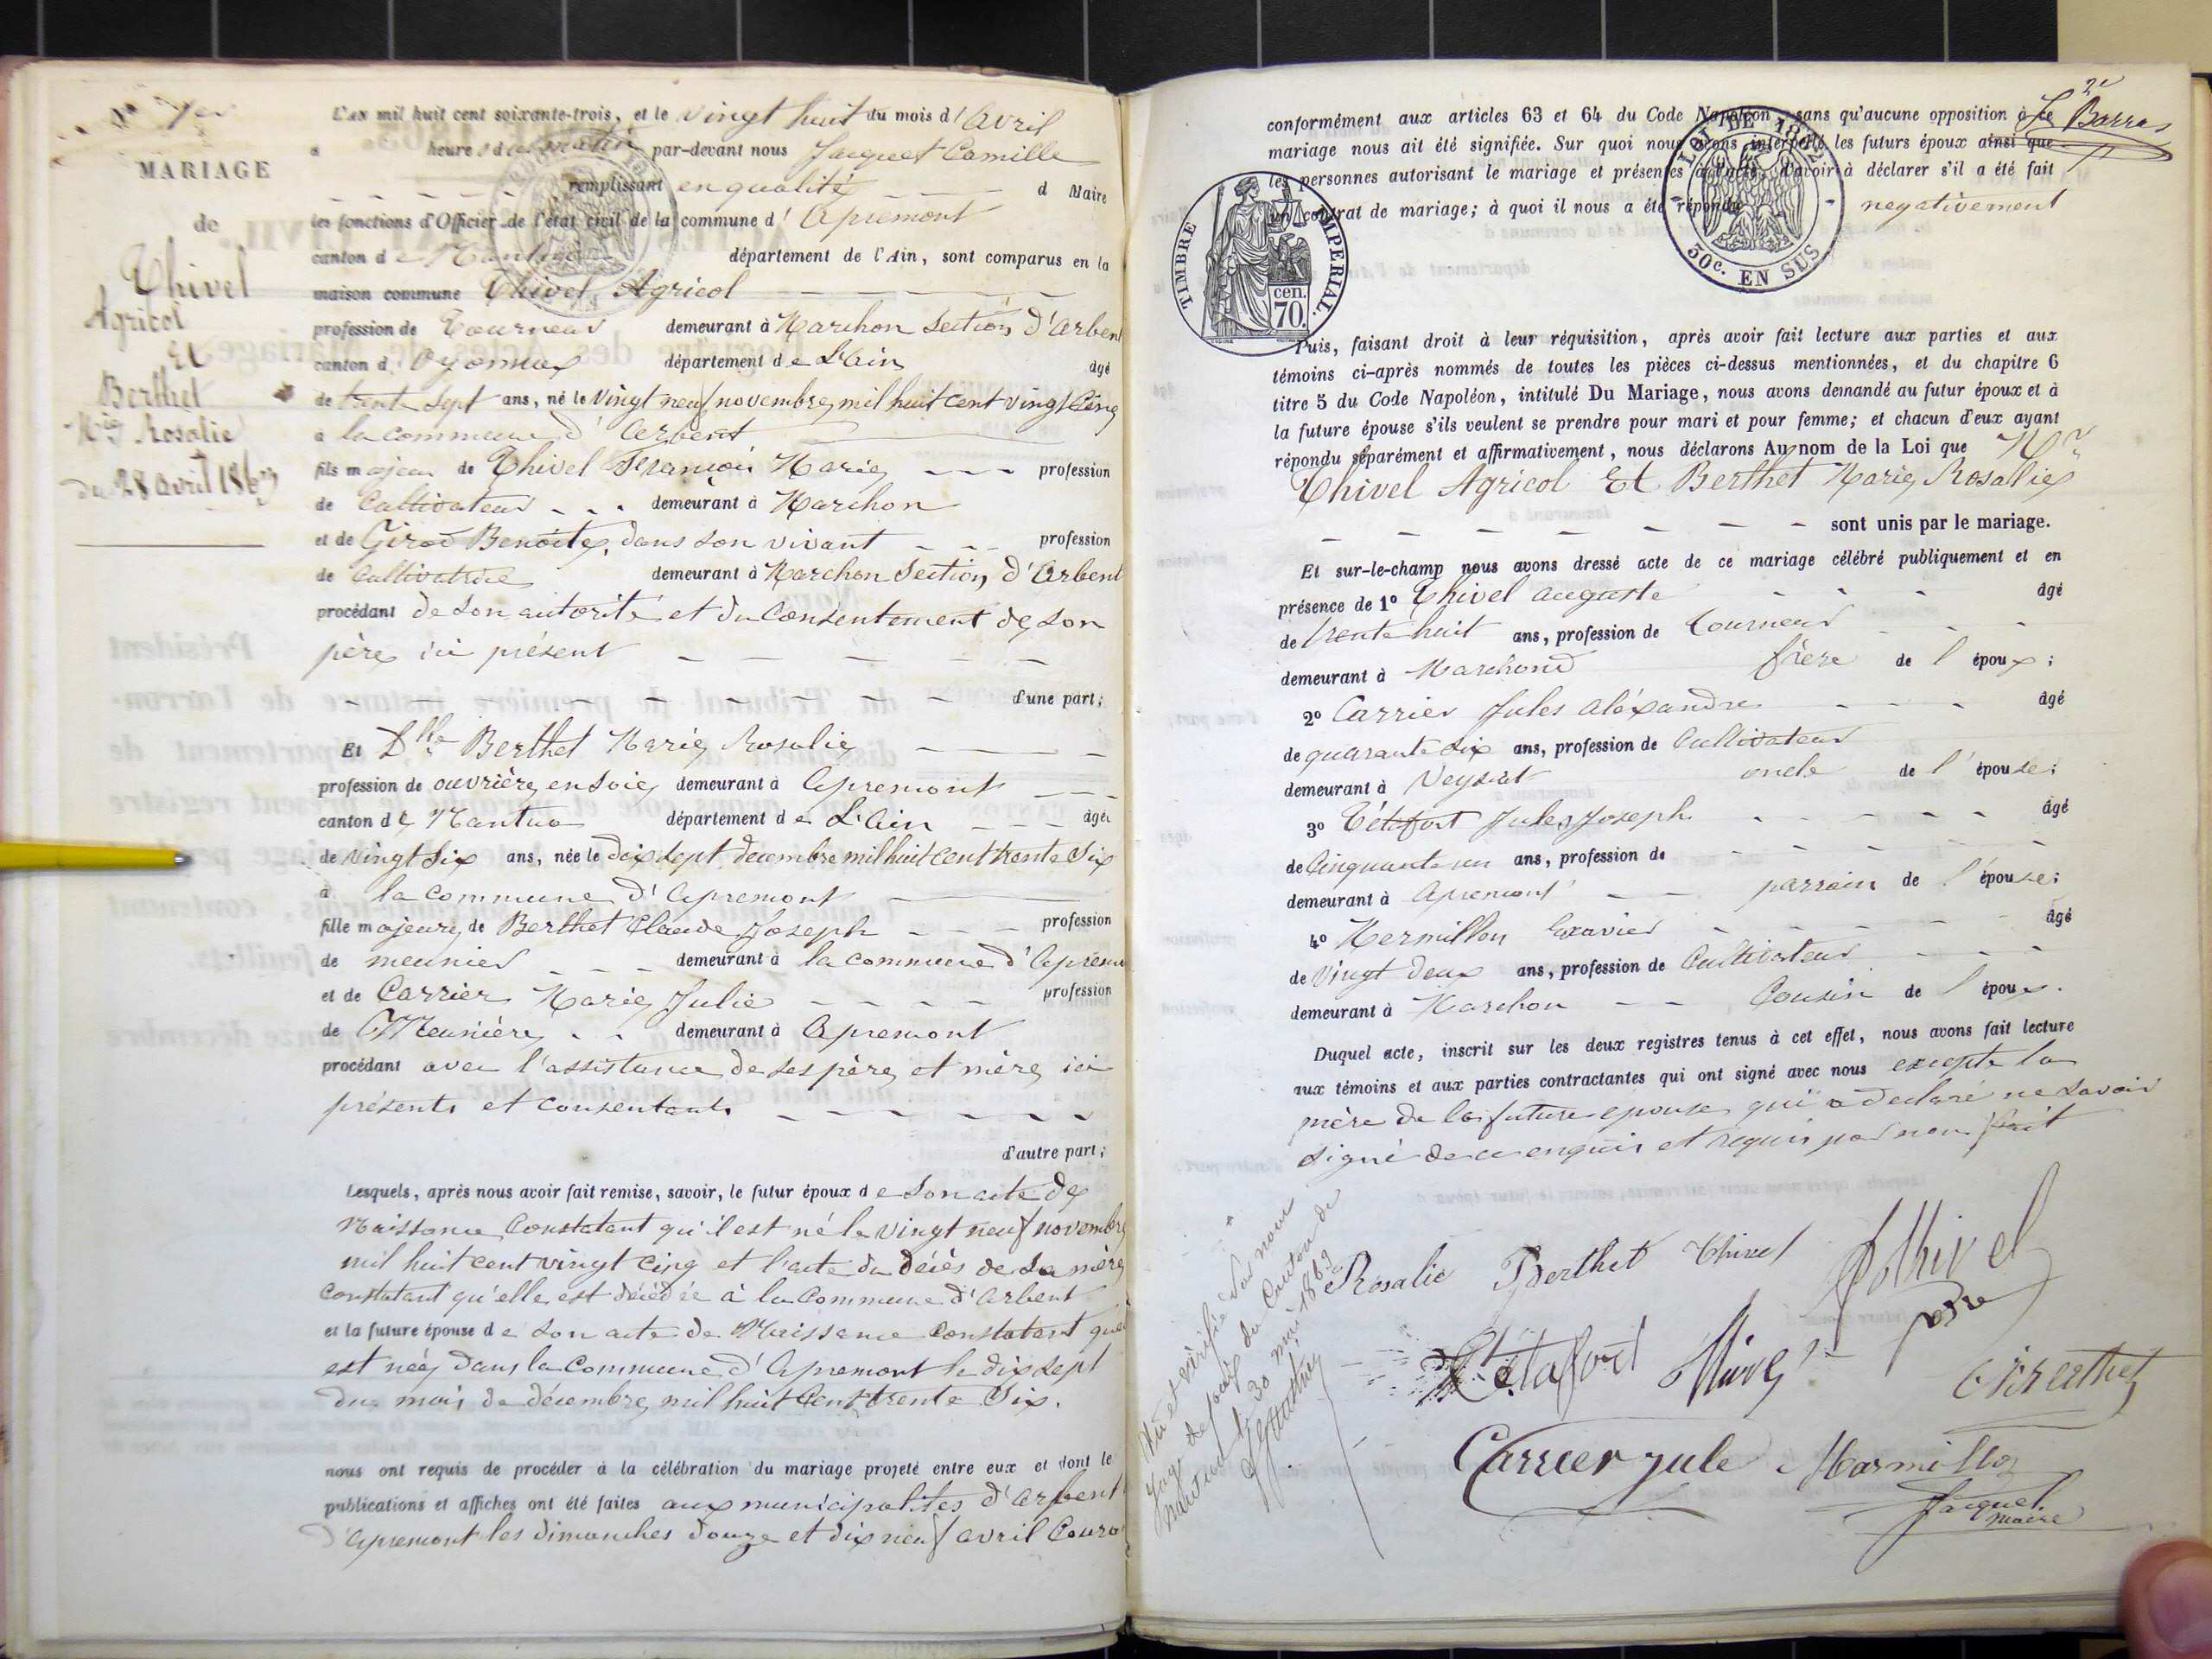 N° 1er
MARIAGE
de
Thivel
Agricol
Et
Berthet
Mie Rosalie
du 28 avril 1863
L'AN mil huit cent soixante-trois, et le vingt huit du mois d'Avril
à heures du matin par-devant nous Jacquet Camille
remplissant en qualité d Maire
les fonctions d'Officier de l'état civil de la commune d'Apremont
canton de Nantua département de l'Ain, sont comparus en la
maison commune Thivel Agricol
profession de Tourneur demeurant à Marchon Section d'Arbent
canton d'Oyonnax département de L'Ain âgé
de trente sept ans, né le vingt neuf novembre mil huit cent vingt Cinq
à la commune d'Arbent
fils majeur de Thivel François Marie profession
de Cultivateur demeurant à Marchon
et de Girod Benoite, dans son vivant profession
de Cultivatrice demeurant à Marchon Section d'Arbent
procédant de son autorité et du Consentement de son
père ici présent
d'une part;
Et Dlle Berthet Marie Rosalie
profession de ouvrière en soie demeurant à Apremont
canton de Nantua département de L'Ain âgée
de vingt six ans, née le dix sept decembre mil huit cent trente Six
à la commune d'Apremont
fille majeure de Berthet Claude Joseph profession
de meunier demeurant à la commune d'Apremont
et de Carrier Marie Julie profession
de Meunière demeurant à Apremont
procédant avec l'assistance de ses père et mère ici
présents et consentants
d'autre part;
Lesquels, après nous avoir fait remise, savoir, le futur époux de Son acte de
Naissance Constatant qu'il est né le vingt neuf novembre
mil huit cent vingt Cinq et l'acte du décès de Sa mère
constatant qu'elle est décédée à la Commune d'Arbent
et la future épouse de Son acte de Naissance Constatant que
est née dans la Commune d'Apremont le dix sept
du mois de décembre mil huit Cent trente Six.
nous ont requis de procéder à la célébration du mariage projeté entre eux et dont le
publications et affiches ont été faites aux municipalites d'Arbent
d'Apremont les dimanches douze et dix neuf avril Coura
2e
Le Barras
conformément aux articles 63 et 64 du Code Napoléon, sans qu'aucune opposition à ce
mariage nous ait été signifiée. Sur quoi nous avons interpellé les futurs époux ainsi que
les personnes autorisant le mariage et présentes à l'acte, d'avoir à déclarer s'il a été fait
un contrat de mariage; à quoi il nous a été répondu negativement
LOI DE 1862
30c. EN SUS
TIMBRE IMPERIAL.
cen.
70.
Puis, faisant droit à leur réquisition, après avoir fait lecture aux parties et aux
témoins ci-après nommés de toutes les pièces ci-dessus mentionnées, et du chapitre 6
titre 5 du Code Napoléon, intitulé Du Mariage, nous avons demandé au futur époux et à
la future épouse s'ils veulent se prendre pour mari et pour femme; et chacun d'eux ayant
répondu séparément et affirmativement, nous déclarons Au nom de la Loi que Mr
Thivel Agricol Et Berthet Marie Rosalie
sont unis par le mariage.
Et sur-le-champ nous avons dressé acte de ce mariage célébré publiquement et en
présence de 1° Thivel auguste âgé
de trente huit ans, profession de Tourneur
demeurant à Marchond frère de l'époux;
2° Carrier Jules Aléxandre âgé
de quarante six ans, profession de Cultivateur
demeurant à Veyziat oncle de l'épouse;
3° Tétafort Jules Joseph âgé
de Cinquante un ans, profession de
demeurant à Apremont parrain de l'épouse;
4° Mermillon Exavier âgé
de vingt deux ans, profession de Cultivateur
demeurant à Marchon Cousin de l'époux.
Duquel acte, inscrit sur les deux registres tenus à cet effet, nous avons fait lecture
aux témoins et aux parties contractantes qui ont signé avec nous excepte la
mère de la future epouse qui a declaré ne savoir
signé de ce enquis et requis par nous fait
Rosalie Berthet Thivel Thivel
père
Tétafort Thivel Berthet
Carrier jule Marmillon
Jacquet
maire
Vu et vérifié par nous
Juge de paix du Canton de
Nantua le 30 mai 1863